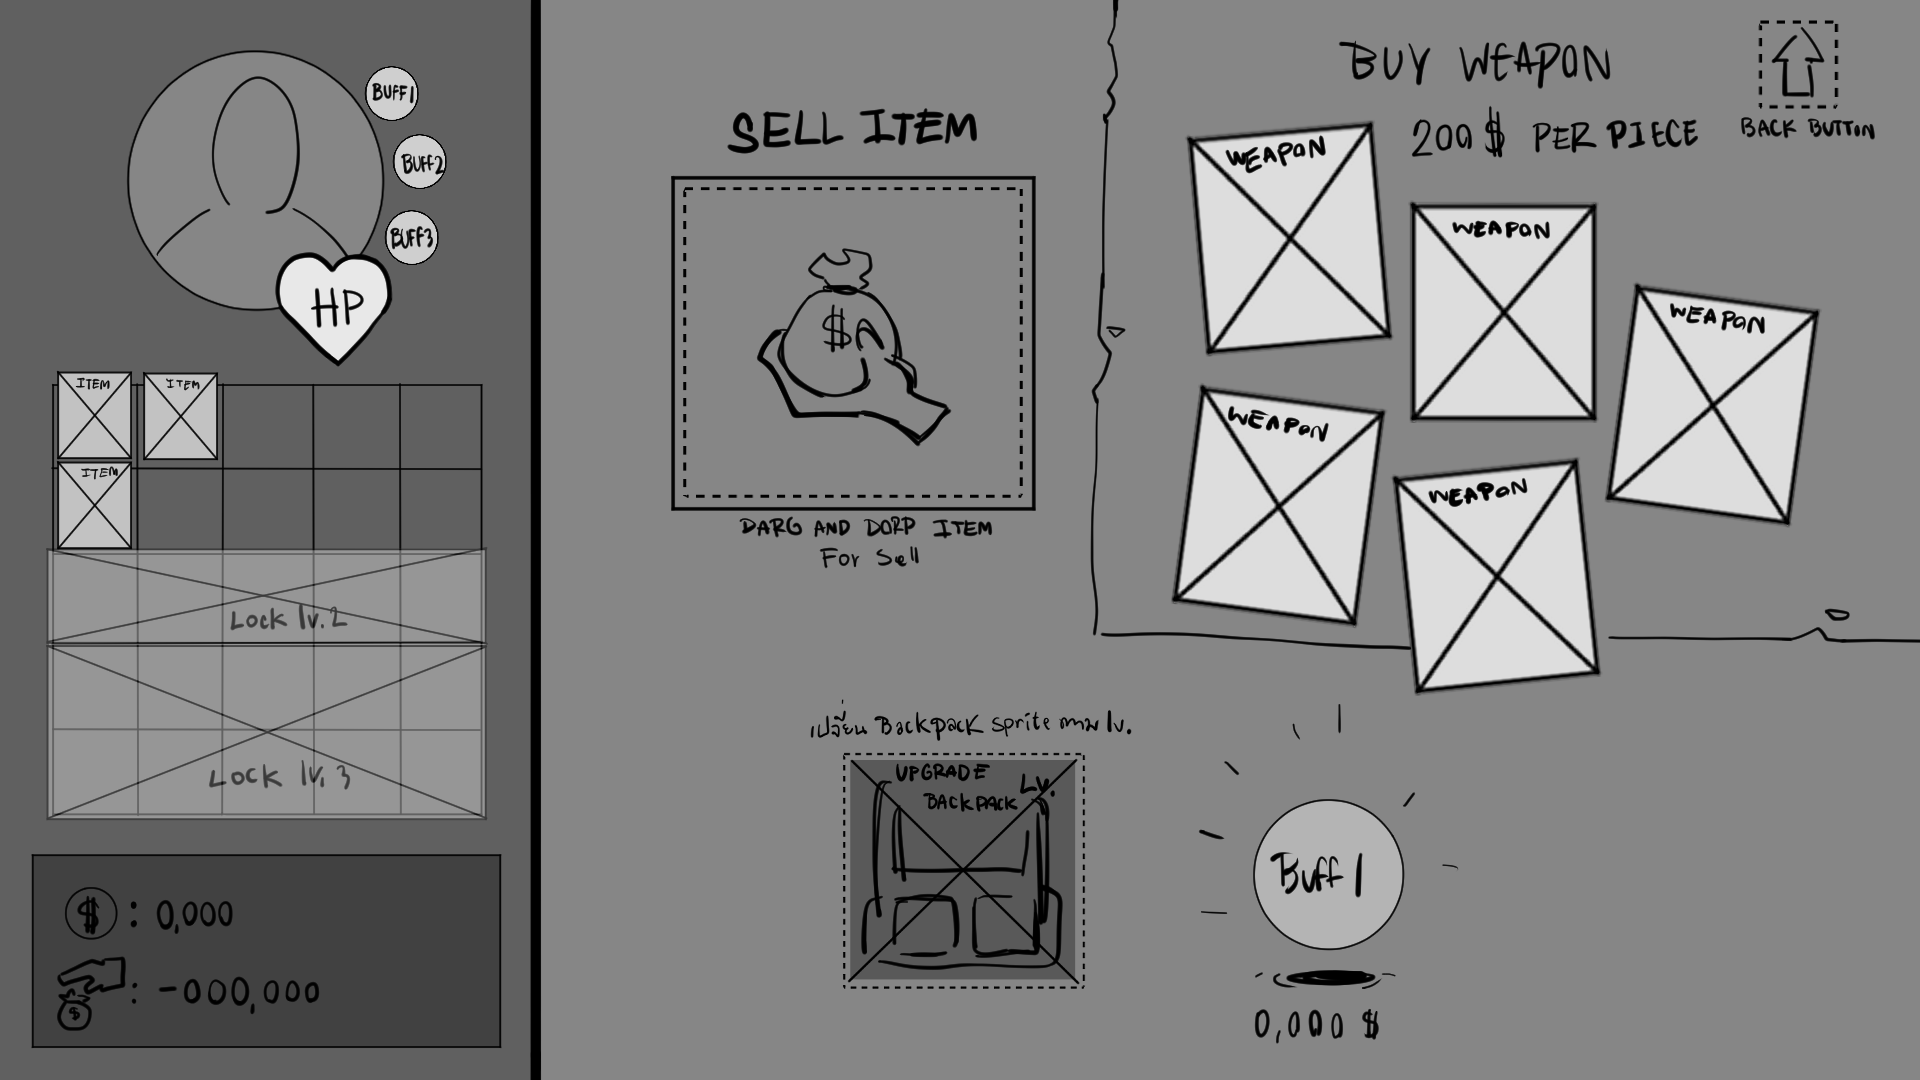 BUFF1
BUFF2
BUFF3
HP
ITEM
ITEM
ITEM
Lock lv.2
Lock lv.3
$ : 0,000
$ : -000,000
SELL ITEM
$
DARG AND DORP ITEM
For Sell
BUY WEAPON
200 $ PER PIECE
BACK BUTTON
WEAPON
WEAPON
WEAPON
WEAPON
WEAPON
เปลี่ยน Backpack sprite ตาม lv.
UPGRADE
BACKPACK
LV.
Buff 1
0,000 $